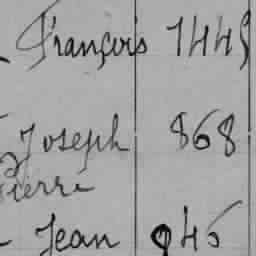 François 1445
Joseph 868
Pierre
Jean 946